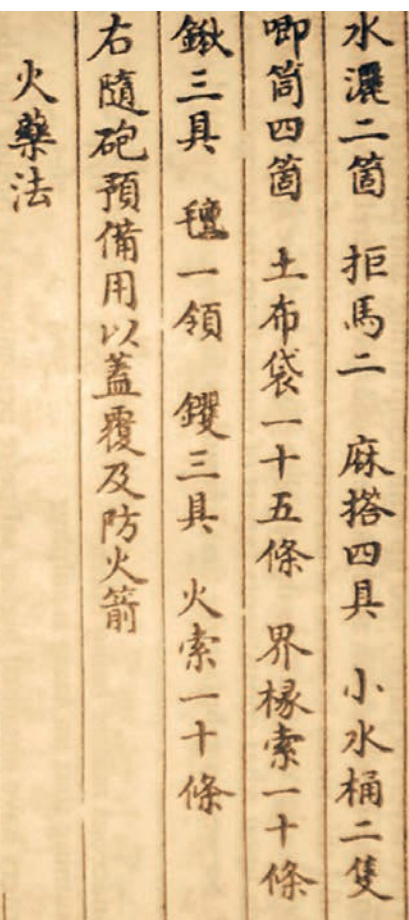 水灑二箇　拒馬二　麻搭四具　小水桶二隻
唧筒四箇　土布袋一十五條　界椽索一十條
鍬三具　氊一領　钁三具　火索一十條
右隨砲預備用以蓋覆及防火箭
火藥法